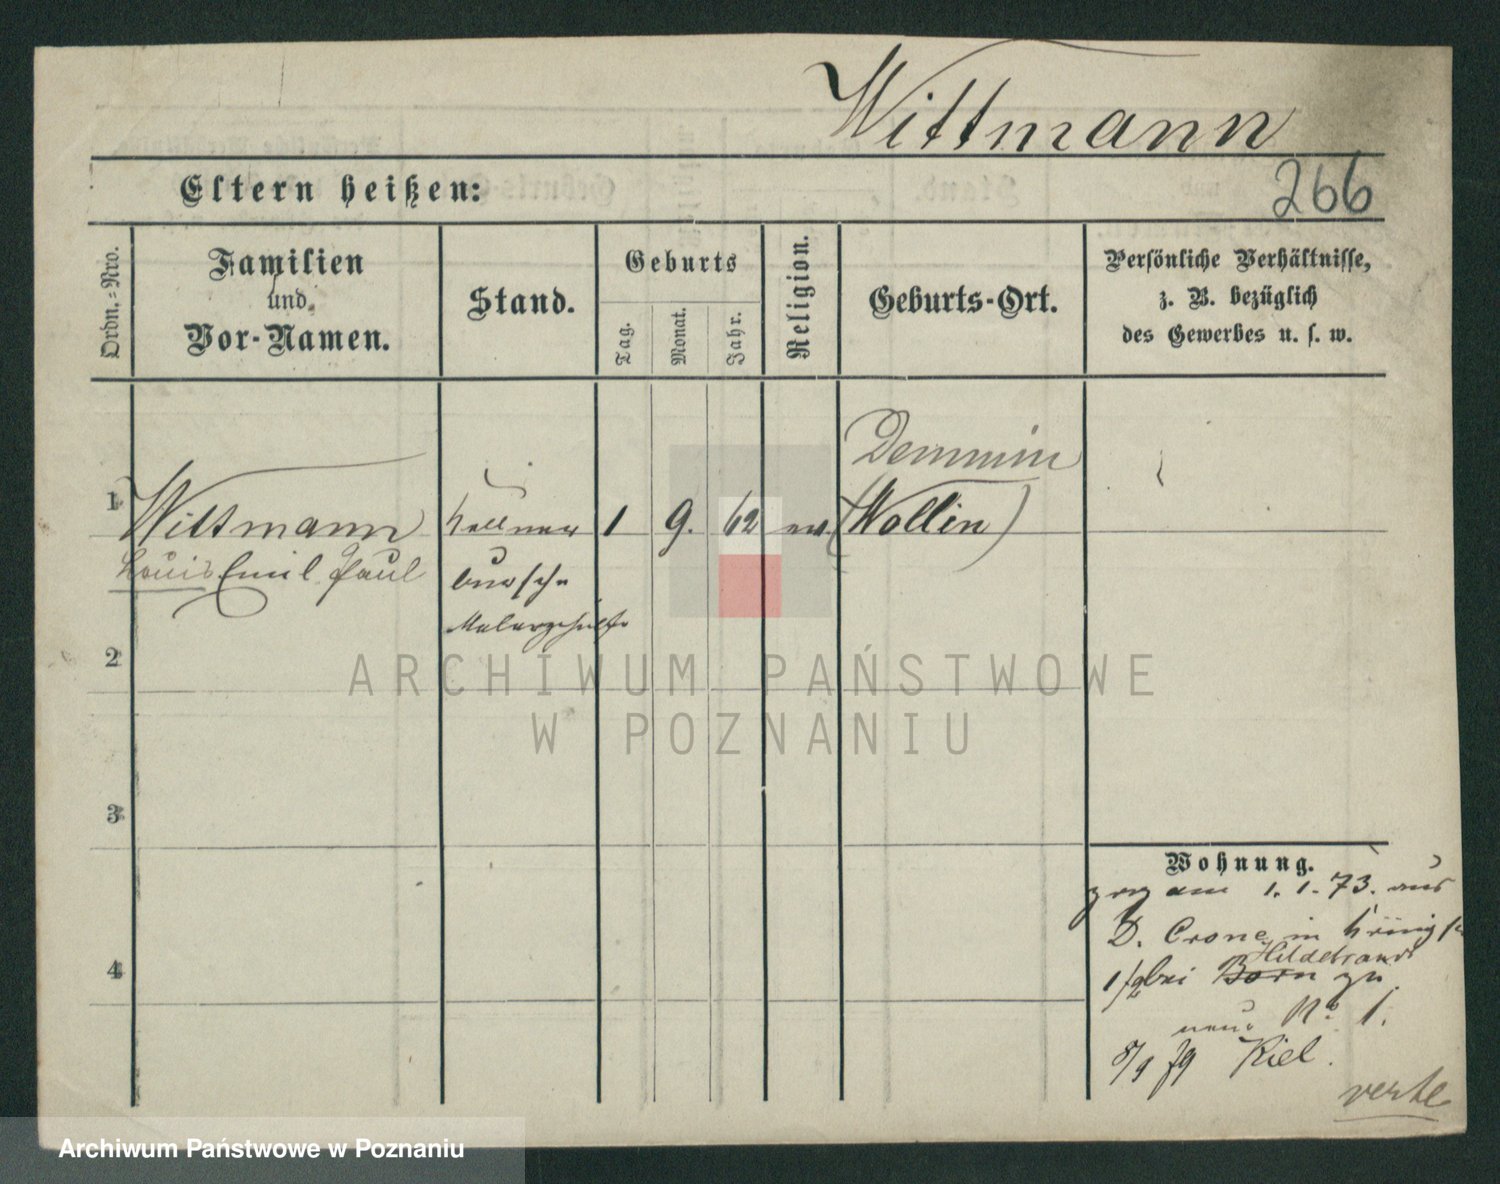 Wittmann
Eltern heißen:
266
Ordn.=Nro.
Familien
und
Vor-Namen.
Stand.
Geburts
Tag.
Monat.
Jahr.
Religion.
Geburts-Ort.
Persönliche Verhältnisse,
z. B. bezüglich
des Gewerbes u. s. w.
Demmin
1 Wittmann Kellner 1 9. 62 ev. (Wollin)
Louis Emil Paul bursche
Malergehülfe
2
3
4
Wohnung.
zog am 1. 1. 73. aus
D. Crone in
Hildebrandt
bei Born zu
neu: No 1.
8/9 79 Kiel.
verte
ARCHIWUM PAŃSTWOWE
W POZNANIU
Archiwum Państwowe w Poznaniu